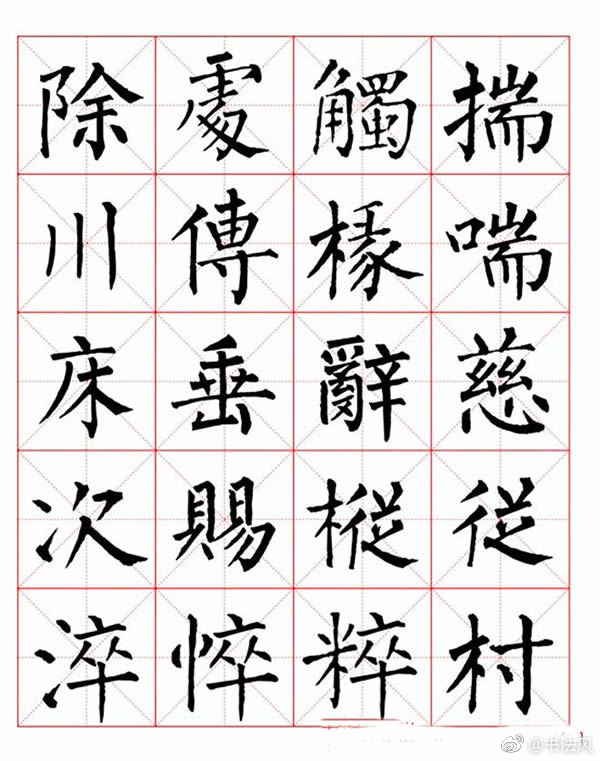 除處觸揣
川傳椽喘
床垂辭慈
次賜樅從
淬悴粹村
@书法风